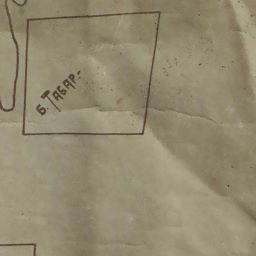 Б. ТАБАР.-